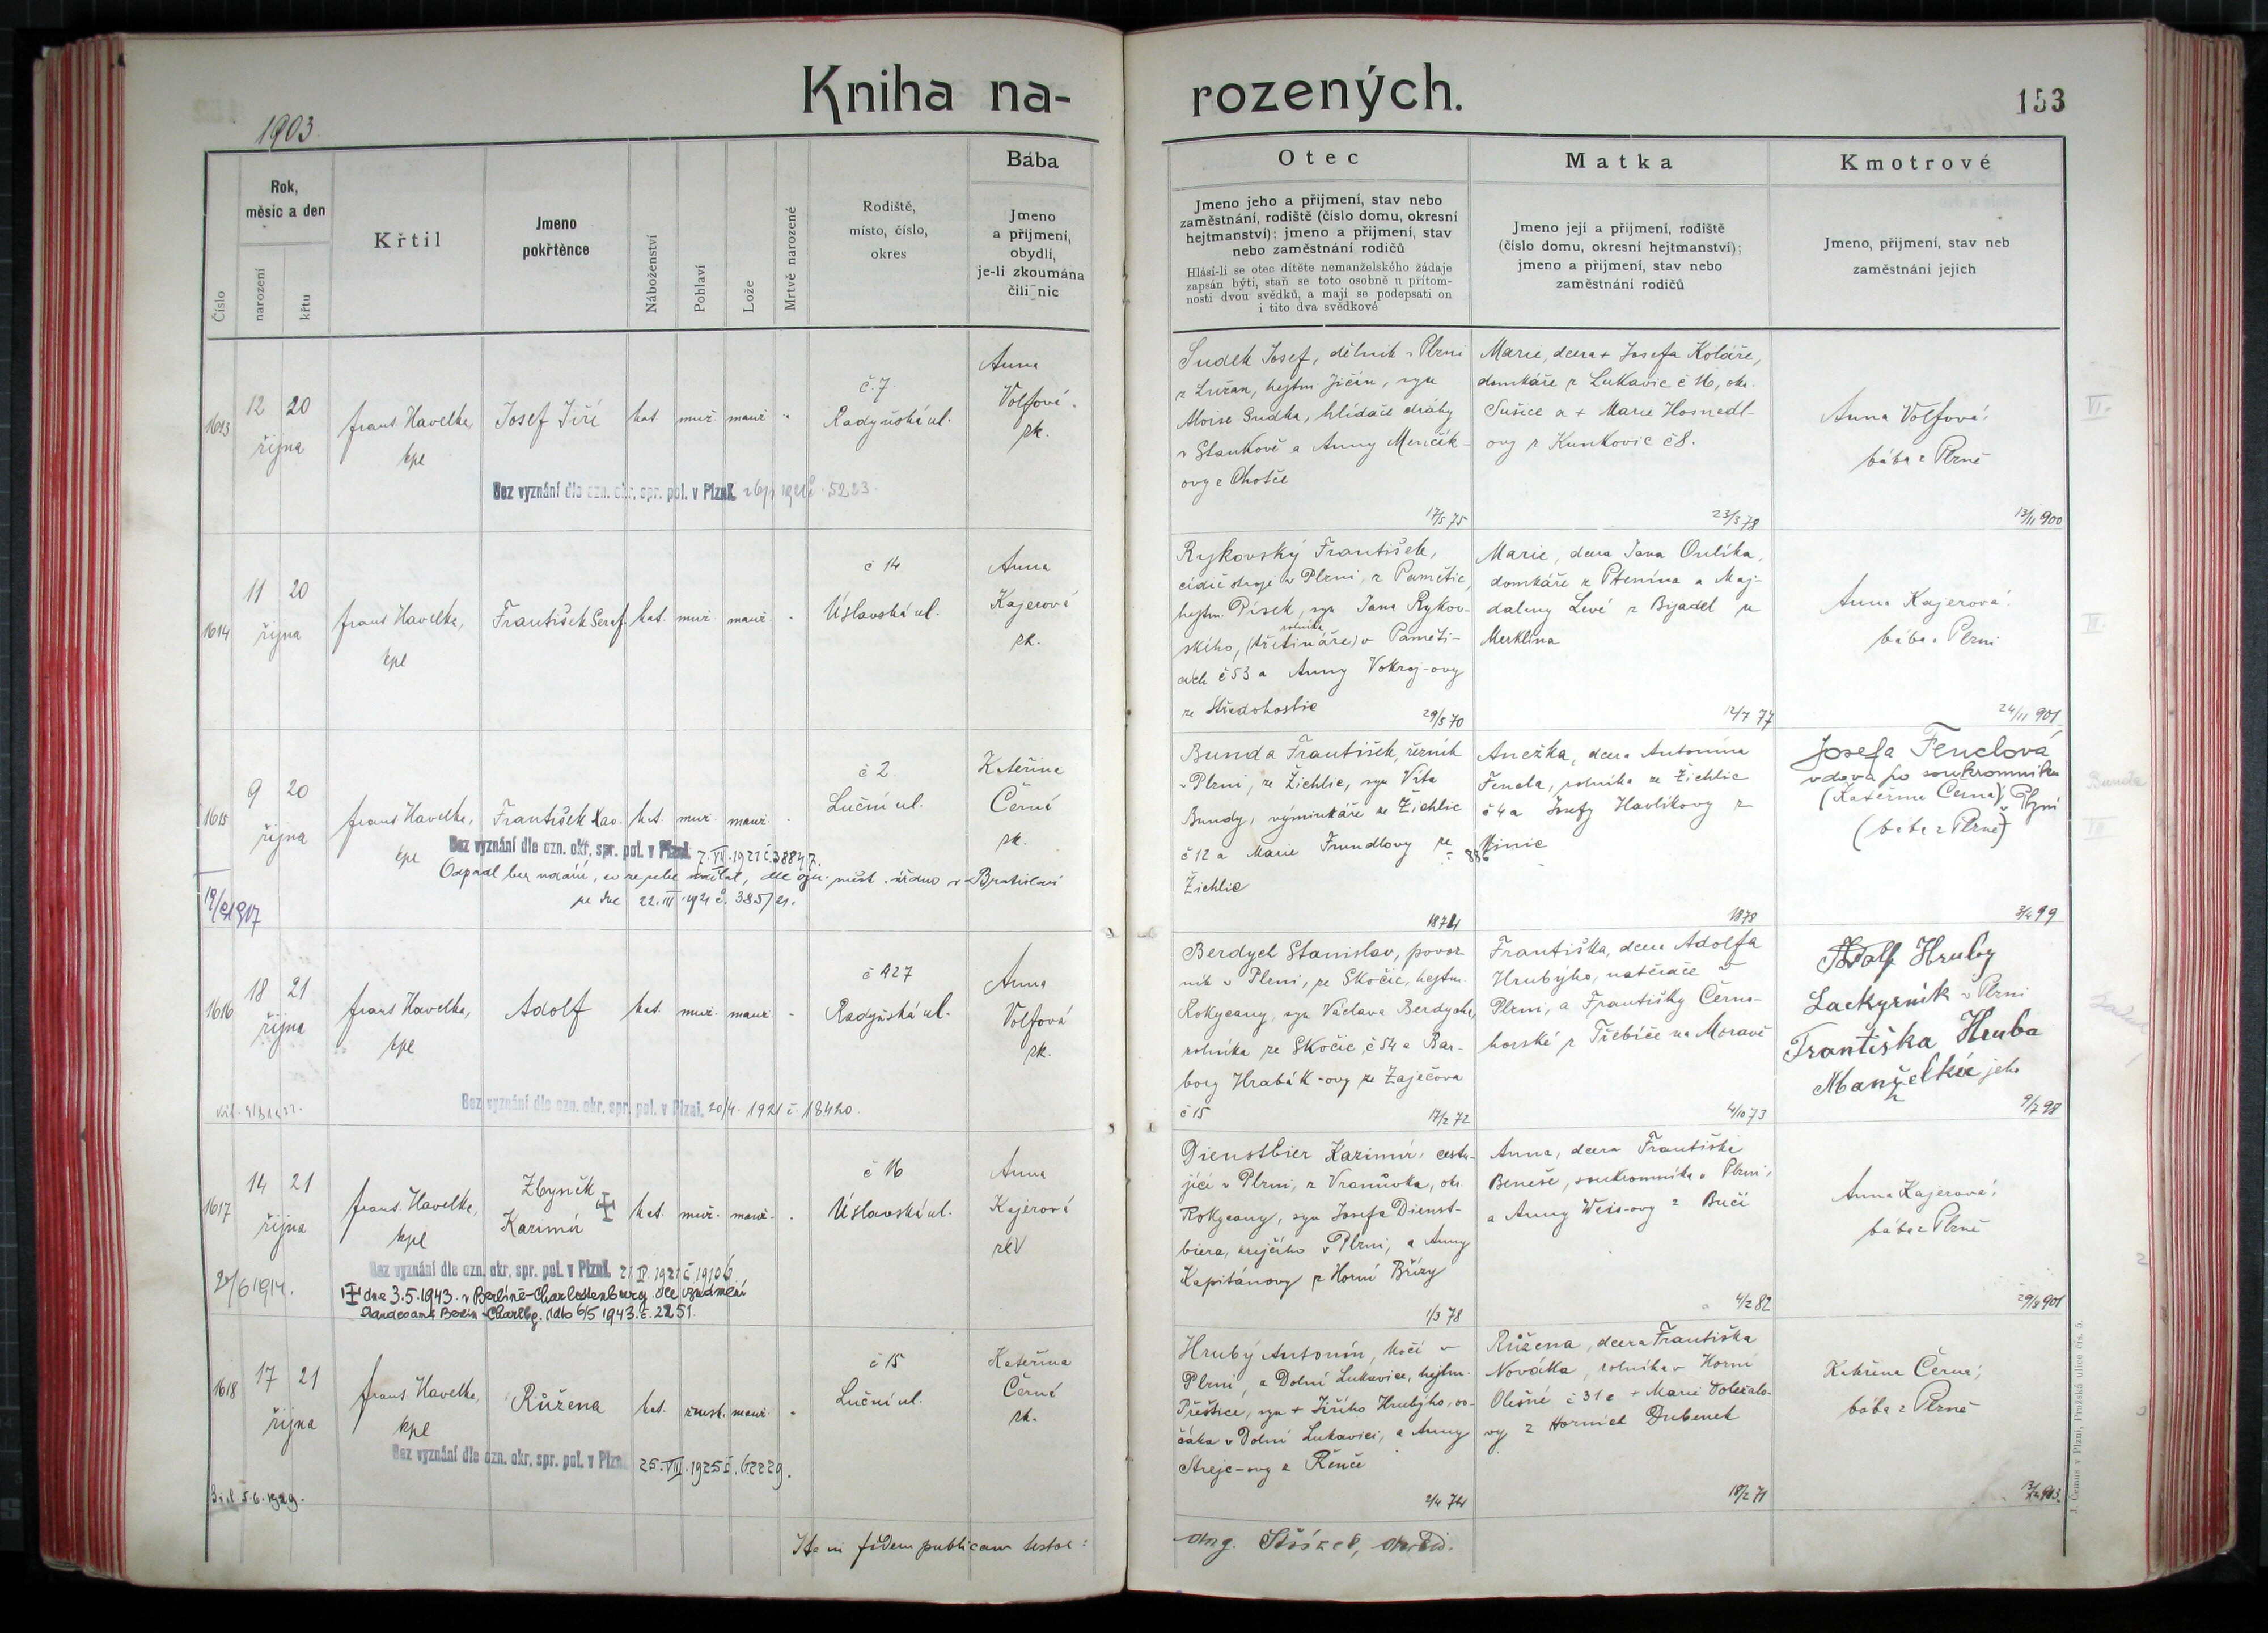 Kniha na-
rozených.
153
1903.
Číslo
Rok,
měsíc a den
narození
křtu
Křtil
Jmeno
pokřtěnce
Náboženství
Pohlaví
Lože
Mrtvě narozené
Rodiště,
místo, číslo,
okres
Bába
Jmeno
a příjmení,
obydlí,
je-li zkoumána
čili nic
Otec
Jmeno jeho a příjmení, stav nebo
zaměstnání, rodiště (číslo domu, okresní
hejtmanství); jmeno a příjmení, stav
nebo zaměstnání rodičů
Hlásí-li se otec dítěte nemanželského žádaje
zapsán býti, staň se toto osobně u přítom-
nosti dvou svědků, a mají se podepsati on
i tito dva svědkové
Matka
Jmeno její a příjmení, rodiště
(číslo domu, okresní hejtmanství);
jmeno a příjmení, stav nebo
zaměstnání rodičů
Kmotrové
Jmeno, příjmení, stav neb
zaměstnání jejich
1613
12 20
října
frant. Havelka,
kpl
Josef Jiří
kat. muž. manž. -
č. 7
Radyňská ul.
Anna
Volfová
zk.
Bez vyznání dle ozn. okr. spr. pol. v Plzni 5223.
Sudek Josef, dělník v Plzni
z Lužan, hejtm. Jičín, syn
Aloise Sudka, hlídače dráhy
v Staňkově a Anny Menčík-
ovy z Ohošťe
17/5 75
Marie, dcera + Josefa Koláře,
domkáře z Lukavic č 16, okr.
Sušice a + Marie Hosnedl-
ovy z Kunkovic č 8.
23/3 78
Anna Volfová,
bába z Plzně
13/11 900
1614
11 20
října
frant Havelka,
kpl
František Seraf. kat. muž. manž. -
č 14
Úslavská ul.
Anna
Kajerová
zk.
Rykovský František,
cídič strojů v Plzni, z Pamětic,
hejtm. Písek, syn Jana Rykov-
ského, (třetináře) rolníka v Paměti-
cích č 53 a Anny Vokroj-ovy
ze Středohostic
29/5 70
Marie, dcera Jana Oulíka,
domkáře z Ptenína a Maj-
daleny Levé z Bijadel u
Merklína
12/7 77
Anna Kajerová,
bába v Plzni
24/11 901
1615
9 20
října
frant Havelka,
kpl
František Xav. kat. muž. manž. -
č 2
Luční ul.
Kateřina
Černá
zk.
Bez vyznání dle ozn. okr. spr. pol. v Plzni 7. VII. 1921 č. 38847.
Odpadl bez udání, co ze sebe udělal, dle ozn. měst. úřadu v Bratislavě
ze dne 22. III. 1921 č. 385/21.
Bunda František, řezník
v Plzni, ze Žichlic, syn Víta
Bundy, výminkáře ze Žichlic
č 12 a Marie Frundlovy ze
Žichlic
1874
Anežka, dcera Antonína
Fencla, rolníka ze Žichlic
č 4 a Josefy Havlíkovy z
1878
Josefa Fenclová
vdova po soukromníku
(Kateřina Černá), Plzni
(bába z Plzně)
3/4 99
1616
18 21
října
frant Havelka,
kpl
Adolf kat. muž. manž. -
č 427
Radyňská ul.
Anna
Volfová
zk.
Bez vyznání dle ozn. okr. spr. pol. v Plzni. 20/4. 1921 č. 18420.
Berdych Stanislav, povoz-
ník v Plzni, ze Skočic, hejtm.
Rokycany, syn Václava Berdycha,
rolníka ze Skočic č 54 a Bar-
bory Hrabák-ovy ze Zaječova
č 15
17/2 72
Františka, dcera Adolfa
Hrubýho, natěrače v
Plzni, a Františky Černo-
horské z Třebíče na Moravě
4/10 73
Adolf Hruby
Lackyrník v Plzni
Františka Hruba
Manželka jeho
9/7 98
1617
14 21
října
frant. Havelka,
kpl
Zbyněk
Kazimír
kat. muž. manž. -
č 16
Úslavská ul.
Anna
Kajerová
zk
Bez vyznání dle ozn. okr. spr. pol. v Plzni. 21. IV. 1921 č 19106.
dne 3.5.1943. v Berlíně-Charlottenburg dle oznámení
Standesamt Berlin-Charlbg. ddto 6/5 1943. č. 2251.
Dienstbier Kazimír, cestu-
jící v Plzni, z Vranůvka, okr.
Rokycany, syn Josefa Dienst-
biera, krejčího v Plzni, a Anny
Kapitánovy z Horní Břízy
1/3 78
Anna, dcera Františka
Beneše, soukromníka v Plzni,
a Anny Weis-ovy z Bučí
4/2 82
Anna Kajerová,
bába z Plzně
29/8 901
1618
17 21
října
frant. Havelka,
kpl
Růžena kat. žensk. manž. -
č 15
Luční ul.
Kateřina
Černá
zk.
Bez vyznání dle ozn. okr. spr. pol. v Plzni 25. VIII. 1925 č. 62229.
5.6.1929.
Hrubý Antonín, kočí v
Plzni, z Dolní Lukavice, hejtm.
Přeštice, syn + Jiřího Hrubýho, ov-
čáka v Dolní Lukavici, a Anny
Strejc-ovy z Řenče
2/4 74
Růžena, dcera Františka
Nováka, rolníka v Horní
Olešné č 31 a + Marie Doležalo-
vy z Horních Dubenek
18/2 71
Kateřina Černá,
bába z Plzně
Ita in fidem publicam testor:
J. Cénus v Plzni, Pražská ulice čís. 5.